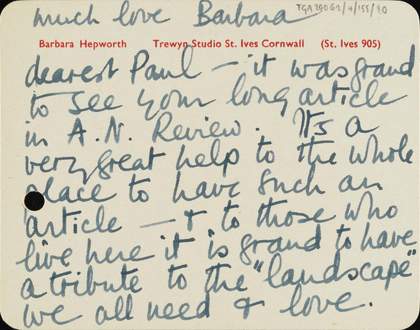 much love Barbara
TGA 200
Barbara Hepworth Trewyn Studio St. Ives Cornwall (St. Ives 905)
dearest Paul — it was grand
to see your long article
in A.N. Review. Its a
very great help to the whole
place to have such an
article — & to those who
live here it is grand to have
a tribute to the "landscape"
we all need & love.